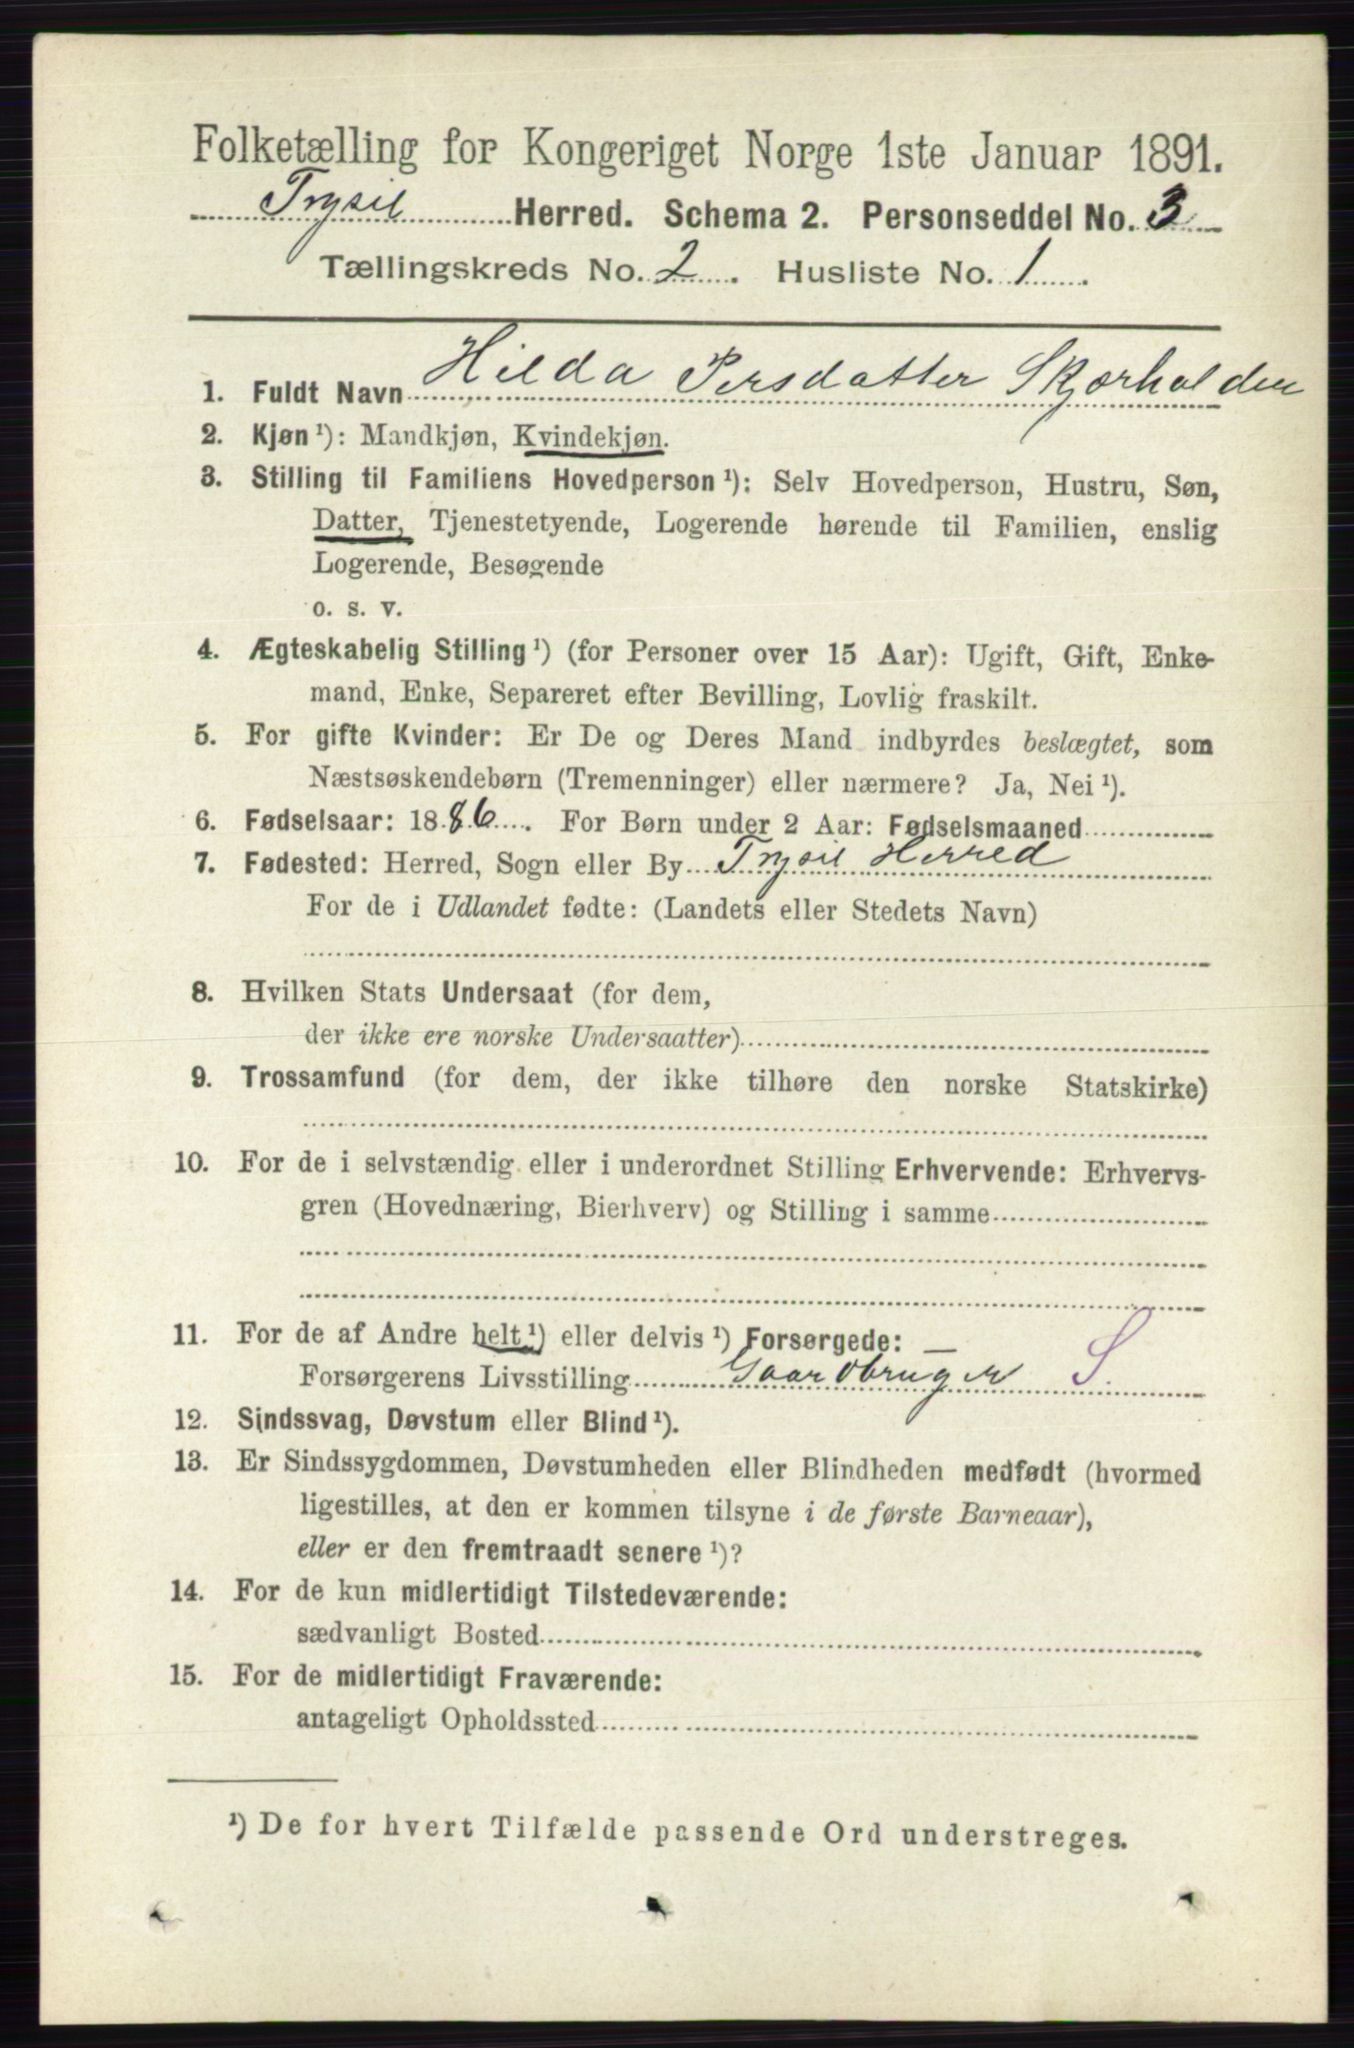 Folketælling for Kongeriget Norge 1ste Januar 1891.
Trysil Herred. Schema 2. Personseddel No. 3
Tællingskreds No. 2. Husliste No. 1.
1. Fuldt Navn Hilda Persdatter Skjærholden
2. Kjøn ¹): Mandkjøn, Kvindekjøn.
3. Stilling til Familiens Hovedperson ¹): Selv Hovedperson, Hustru, Søn,
Datter, Tjenestetyende, Logerende hørende til Familien, enslig
Logerende, Besøgende
o. s. v.
4. Ægteskabelig Stilling ¹) (for Personer over 15 Aar): Ugift, Gift, Enke-
mand, Enke, Separeret efter Bevilling, Lovlig fraskilt.
5. For gifte Kvinder: Er De og Deres Mand indbyrdes beslægtet, som
Næstsøskendebørn (Tremenninger) eller nærmere? Ja, Nei ¹).
6. Fødselsaar: 1886. For Børn under 2 Aar: Fødselsmaaned
7. Fødested: Herred, Sogn eller By Trysil Herred
For de i Udlandet fødte: (Landets eller Stedets Navn)
8. Hvilken Stats Undersaat (for dem,
der ikke ere norske Undersaatter)
9. Trossamfund (for dem, der ikke tilhøre den norske Statskirke)
10. For de i selvstændig eller i underordnet Stilling Erhvervende: Erhvervs-
gren (Hovednæring, Bierhverv) og Stilling i samme
11. For de af Andre helt ¹) eller delvis ¹) Forsørgede: —
Forsørgerens Livsstilling Gaardbruger S.
12. Sindssvag, Døvstum eller Blind ¹).
13. Er Sindssygdommen, Døvstumheden eller Blindheden medfødt (hvormed
ligestilles, at den er kommen tilsyne i de første Barneaar),
eller er den fremtraadt senere ¹)?
14. For de kun midlertidigt Tilstedeværende:
sædvanligt Bosted
15. For de midlertidigt Fraværende:
antageligt Opholdssted
¹) De for hvert Tilfælde passende Ord understreges.